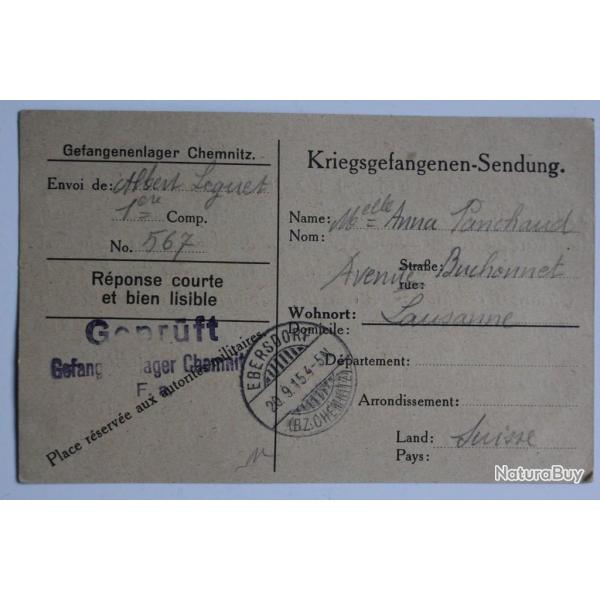 Gefangenenlager Chemnitz.
Envoi de: Albert Leguet
1ère Comp.
No. 567
Réponse courte
et bien lisible
Geprüft
Gefangenenlager Chemnitz
F. a.
Place réservée aux autorités militaires.
EBERSDORF
29.9.15.4-5N.
(BZ.CHEMNITZ)
Kriegsgefangenen-Sendung.
Name: Melle Anna Panchaud
Nom:
Straße: Avenue Buchonnet
rue:
Wohnort: Lausanne
Domicile:
Département:
Arrondissement:
Land: Suisse
Pays:
NaturaBuy